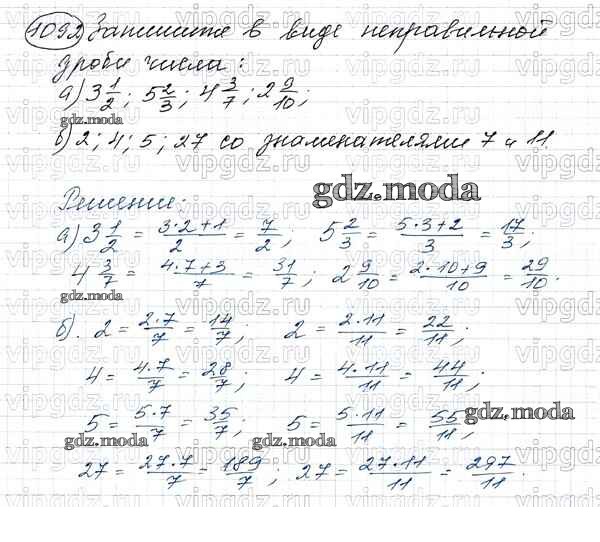 1092 Запишите в виде неправильной
дроби числа:
а) 3 1/2; 5 2/3; 4 3/7; 2 9/10;
gdz.moda
б) 2; 4; 5; 27 со знаменателями 7 и 11.
gdz.moda
Решение:
а) 3 1/2 = (3·2+1)/2 = 7/2; 5 2/3 = (5·3+2)/3 = 17/3;
4 3/7 = (4·7+3)/7 = 31/7; 2 9/10 = (2·10+9)/10 = 29/10.
gdz.moda
б). 2 = (2·7)/7 = 14/7; 2 = (2·11)/11 = 22/11;
4 = (4·7)/7 = 28/7; 4 = (4·11)/11 = 44/11;
5 = (5·7)/7 = 35/7; 5 = (5·11)/11 = 55/11;
gdz.moda
gdz.moda gdz.moda
27 = (27·7)/7 = 189/7; 27 = (27·11)/11 = 297/11.
vipgdz.ru